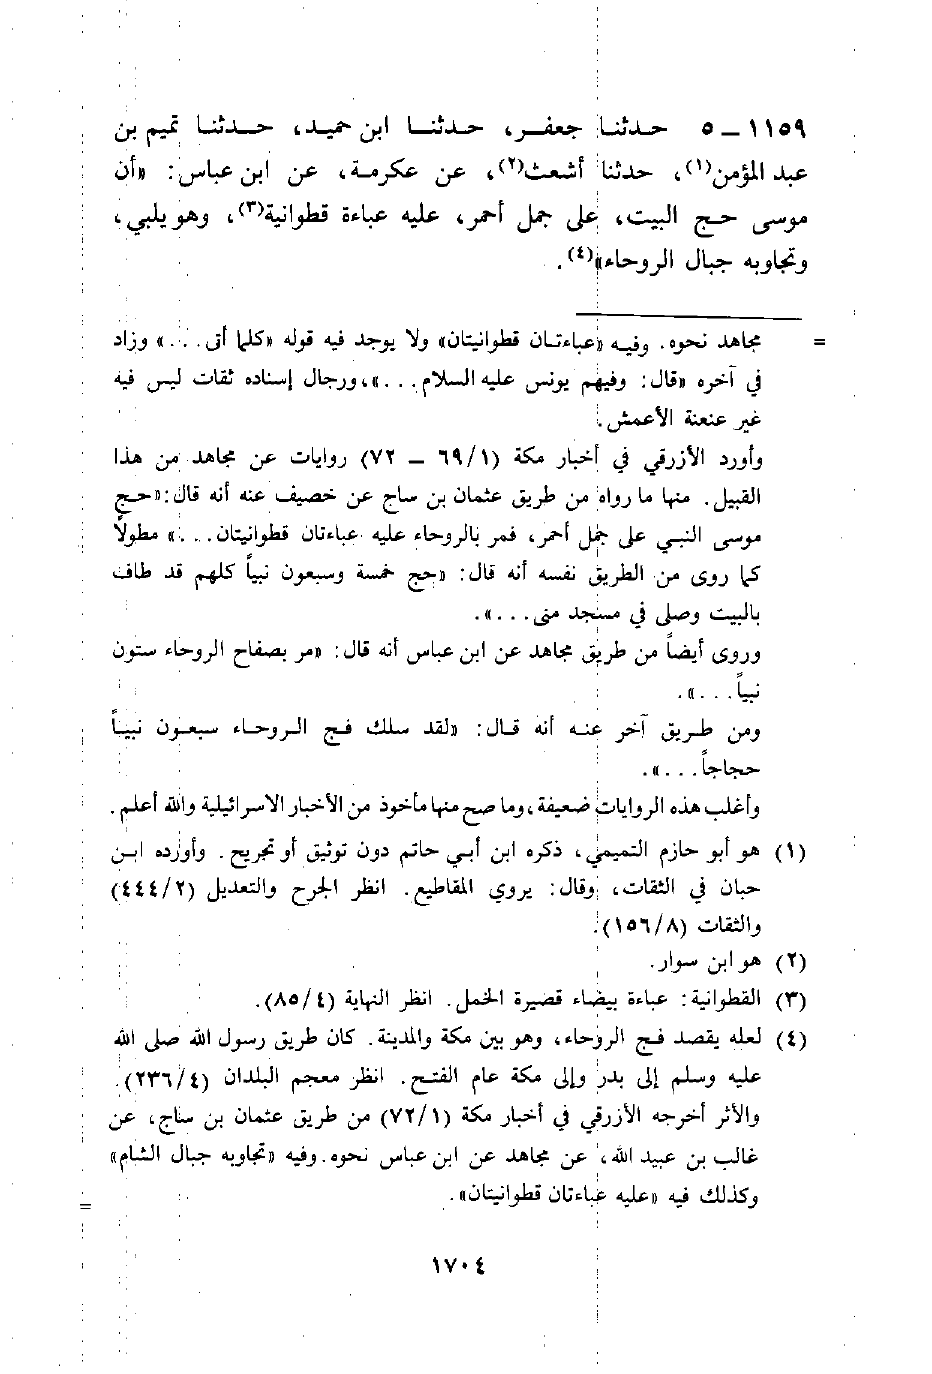 ١١٥٩ – ٥ حدثنا جعفر، حدثنا ابن حميد، حدثنا تميم بن
عبد المؤمن(١)، حدثنا أشعث(٢)، عن عكرمة، عن ابن عباس: «أن
موسى حج البيت، على جمل أحمر، عليه عباءة قطوانية(٣)، وهو يلبي،
وتجاوبه جبال الروحاء»(٤).
= مجاهد نحوه. وفيه «عباءتان قطوانيتان» ولا يوجد فيه قوله «كلما أتى...» وزاد
في آخره «قال: وفيهم يونس عليه السلام...»، ورجال إسناده ثقات ليس فيه
غير عنعنة الأعمش.
وأورد الأزرقي في أخبار مكة (٦٩/١ – ٧٢) روايات عن مجاهد من هذا
القبيل. منها ما رواه من طريق عثمان بن ساج عن خصيف عنه أنه قال: «حج
موسى النبي على جمل أحمر، فمر بالروحاء عليه عباءتان قطوانيتان...» مطولاً
كما روى من الطريق نفسه أنه قال: «حج خمسة وسبعون نبياً كلهم قد طاف
بالبيت وصلى في مسجد منى...».
وروى أيضاً من طريق مجاهد عن ابن عباس أنه قال: «مر بصفاح الروحاء ستون
نبياً...».
ومن طريق آخر عنه أنه قال: «لقد سلك فج الروحاء سبعون نبياً
حجاجاً...».
وأغلب هذه الروايات ضعيفة، وما صح منها مأخوذ من الأخبار الاسرائيلية والله أعلم.
(١) هو أبو حازم التميمي، ذكره ابن أبي حاتم دون توثيق أو تجريح. وأورده ابن
حبان في الثقات، وقال: يروي المقاطيع. انظر الجرح والتعديل (٤٤٤/٢)
والثقات (١٥٦/٨).
(٢) هو ابن سوار.
(٣) القطوانية: عباءة بيضاء قصيرة الخمل. انظر النهاية (٨٥/٤).
(٤) لعله يقصد فج الروحاء، وهو بين مكة والمدينة. كان طريق رسول الله صلى الله
عليه وسلم إلى بدر وإلى مكة عام الفتح. انظر معجم البلدان (٢٣٦/٤).
والأثر أخرجه الأزرقي في أخبار مكة (٧٢/١) من طريق عثمان بن ساج، عن
غالب بن عبيد الله، عن مجاهد عن ابن عباس نحوه. وفيه «تجاوبه جبال الشام»
وكذلك فيه «عليه عباءتان قطوانيتان».
=
١٧٠٤